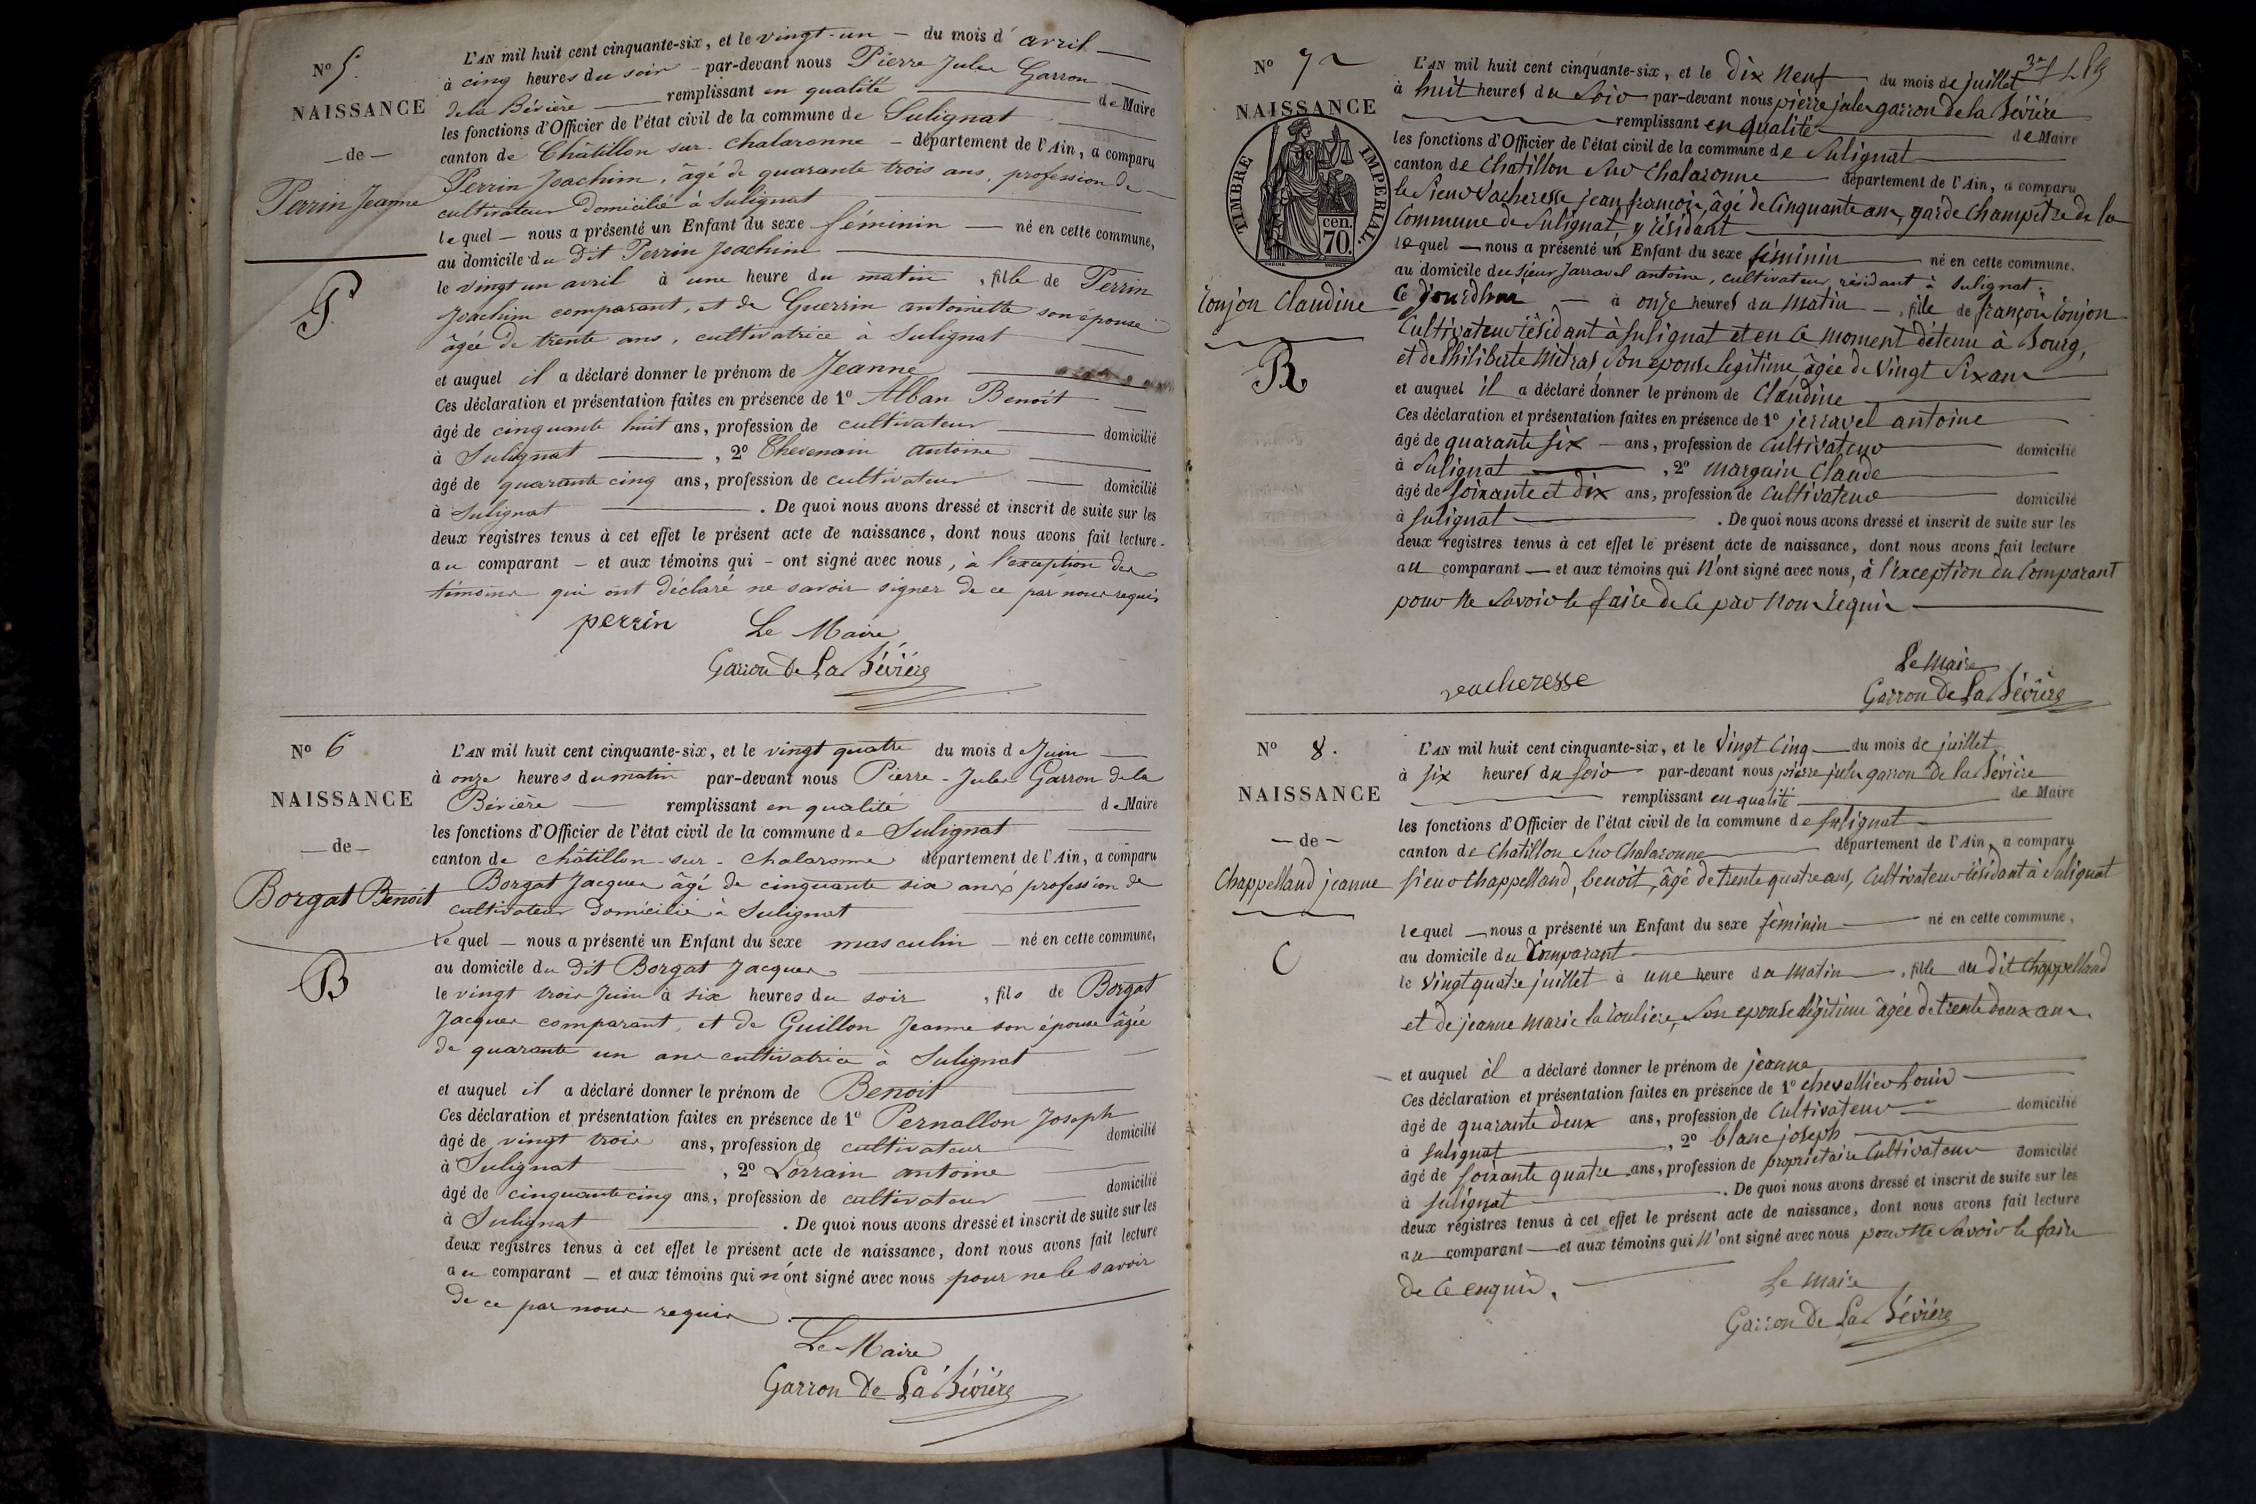 N° 5.
NAISSANCE
— de —
Perrin Jeanne
P.
L'AN mil huit cent cinquante-six, et le vingt-un — du mois d'avril —
à cinq heures du soir — par-devant nous Pierre Jules Garron
de la Bévière — remplissant en qualité — de Maire
les fonctions d'Officier de l'état civil de la commune de Sulignat
canton de Châtillon sur Chalaronne — département de l'Ain, a comparu
Perrin Joachim, âgé de quarante trois ans, profession de
cultivateur domicilié à Sulignat
lequel — nous a présenté un Enfant du sexe féminin — né en cette commune,
au domicile du dit Perrin Joachim
le vingt un avril à une heure du matin, fille de Perrin
Joachim comparant, et de Guerrin antoinette son épouse
âgée de trente ans, cultivatrice à Sulignat
et auquel il a déclaré donner le prénom de Jeanne
Ces déclaration et présentation faites en présence de 1° Alban Benoit
âgé de cinquante huit ans, profession de cultivateur — domicilié
à Sulignat —, 2° Thevenain antoine
âgé de quarante cinq ans, profession de cultivateur — domicilié
à Sulignat — . De quoi nous avons dressé et inscrit de suite sur les
deux registres tenus à cet effet le présent acte de naissance, dont nous avons fait lecture
au comparant — et aux témoins qui — ont signé avec nous, à l'exception des
témoins qui ont déclaré ne savoir signer de ce par nous requis
perrin Le Maire
Garron De La Bévière
N° 6
NAISSANCE
— de —
Borgat Benoit
B
L'AN mil huit cent cinquante-six, et le vingt quatre du mois de Juin
à onze heures du matin par-devant nous Pierre-Jules Garron de la
Bévière — remplissant en qualité — de Maire
les fonctions d'Officier de l'état civil de la commune de Sulignat
canton de châtillon-sur-chalaronne département de l'Ain, a comparu
Borgat Jacques âgé de cinquante six ans profession de
cultivateur domicilié à Sulignat
lequel — nous a présenté un Enfant du sexe masculin — né en cette commune,
au domicile du dit Borgat Jacques
le vingt trois Juin à six heures du soir, fils de Borgat
Jacques comparant, et de Guillon Jeanne son épouse âgée
de quarante un ans cultivatrice à Sulignat
et auquel il a déclaré donner le prénom de Benoit
Ces déclaration et présentation faites en présence de 1° Pernollon Joseph
âgé de vingt trois ans, profession de cultivateur domicilié
à Sulignat —, 2° Lorrain antoine
âgé de cinquante cinq ans, profession de cultivateur — domicilié
à Sulignat — . De quoi nous avons dressé et inscrit de suite sur les
deux registres tenus à cet effet le présent acte de naissance, dont nous avons fait lecture
au comparant — et aux témoins qui n'ont signé avec nous pour ne le savoir
de ce par nous requis
Le Maire
Garron De La Bévière
N° 7
NAISSANCE
de
TIMBRE IMPERIAL.
70 cen.
Conjon Claudine
R
L'AN mil huit cent cinquante-six, et le dix neuf — du mois de juillet
à huit heures du soir par-devant nous pierre jules garron de la Bévière
— remplissant en qualité — de Maire
les fonctions d'Officier de l'état civil de la commune de Sulignat
canton de Chatillon sur Chalaronne — département de l'Ain, a comparu
le Sieur Vacheresse jean françois, âgé de Cinquante ans, garde champêtre de la
Commune de Sulignat, y résidant
lequel — nous a présenté un Enfant du sexe féminin — né en cette commune,
au domicile du sieur Jarravel antoine, cultivateur, résidant à Sulignat.
Ce jourdhui — à onze heures du matin —, fille de françois Conjon
Cultivateur résidant à Sulignat et en ce moment détenu à Bourg,
et de Philiberte Métras Son epouse legitime, âgée de Vingt Six ans
et auquel il a déclaré donner le prénom de Claudine
Ces déclaration et présentation faites en présence de 1° jerravel antoine
âgé de quarante six — ans, profession de Cultivateur domicilié
à Sulignat —, 2° margain Claude
âgé de soixante et dix ans, profession de Cultivateur — domicilié
à Sulignat — . De quoi nous avons dressé et inscrit de suite sur les
deux registres tenus à cet effet le présent acte de naissance, dont nous avons fait lecture
au comparant — et aux témoins qui n'ont signé avec nous, à l'exception du Comparant
pour ne savoir le faire de ce par nous requis
vacheresse Le Maire
Garron De La Bévière
N° 8.
NAISSANCE
— de —
Chappelland jeanne
C
L'AN mil huit cent cinquante-six, et le Vingt Cinq — du mois de juillet
à six heures du soir par-devant nous pierre jules garron de la Bévière
— remplissant en qualité — de Maire
les fonctions d'Officier de l'état civil de la commune de Sulignat
canton de Chatillon sur Chalaronne — département de l'Ain, a comparu
sieur Chappelland, benoit, âgé de trente quatre ans, Cultivateur résidant à Sulignat
lequel — nous a présenté un Enfant du sexe féminin — né en cette commune,
au domicile du Comparant
le Vingt quatre juillet à une heure du matin —, fille du dit Chappelland
et de jeanne marie la touliere, Son epouse légitime âgée de trente deux ans
et auquel il a déclaré donner le prénom de jeanne
Ces déclaration et présentation faites en présence de 1° chevallier Louis
âgé de quarante deux ans, profession de Cultivateur — domicilié
à Sulignat —, 2° blanc joseph
âgé de soixante quatre ans, profession de propriétaire Cultivateur domicilié
à Sulignat — . De quoi nous avons dressé et inscrit de suite sur les
deux registres tenus à cet effet le présent acte de naissance, dont nous avons fait lecture
au comparant — et aux témoins qui n'ont signé avec nous pour ne savoir le faire
de ce enquis.
Le Maire
Garron De La Bévière